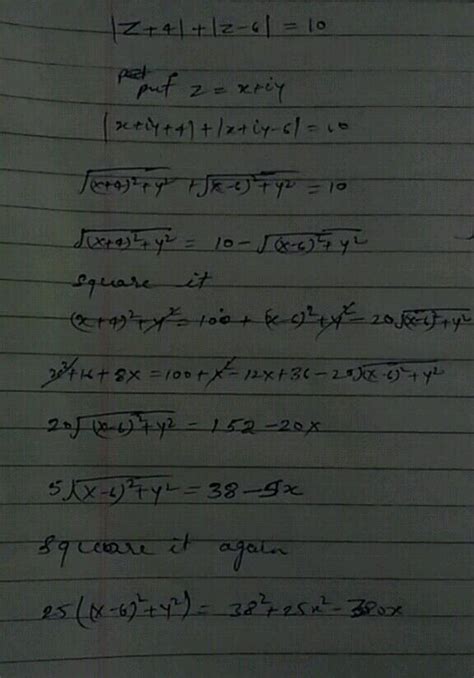 |z+4|+|z-6| = 10
put z = x+iy
|x+iy+4|+|x+iy-6| = 10
√(x+4)²+y² + √(x-6)²+y² = 10
√(x+4)²+y² = 10 - √(x-6)²+y²
square it
(x+4)²+y² = 100 + (x-6)²+y² - 20√(x-6)²+y²
x²+16+8x = 100+x²-12x+36-20√(x-6)²+y²
20√(x-6)²+y² = 152-20x
5√(x-6)²+y² = 38-5x
square it again
25((x-6)²+y²) = 38²+25x²-380x